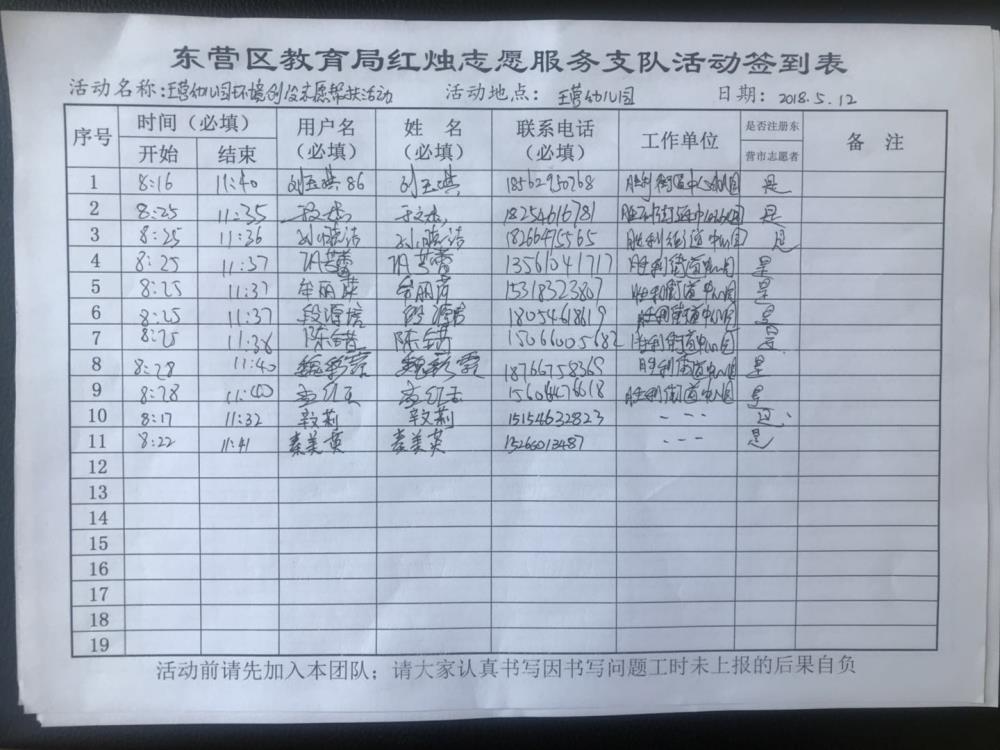 东营区教育局红烛志愿服务支队活动签到表
活动名称:王营幼儿园环境创设志愿帮扶活动 活动地点: 王营幼儿园 日期: 2018.5.12
序号 时间（必填） 用户名（必填） 姓 名（必填） 联系电话（必填） 工作单位 是否注册东营市志愿者 备 注
开始 结束
1 8:16 11:40 刘玉琪86 刘玉琪 18562950768 是
2 8:25 11:35 18254616781 是
3 8:25 11:36 刘晓洁 刘晓洁 18266475565 胜利街道中心园 是
4 8:25 11:37 13561041717 胜利街道中心园 是
5 8:25 11:37 牟丽萍 牟丽萍 15318323867 胜利街道中心园 是
6 8:25 11:37 18054618619 胜利街道中心园 是
7 8:25 11:38 15066005682 胜利街道中心园 是
8 8:28 11:40 魏彩霞 魏彩霞 18766758369 胜利街道中心园 是
9 8:28 11:40 胜利街道中心园 是
10 8:17 11:32 敦莉 敦莉 15154632823 --- 是
11 8:22 11:41 秦美英 秦美英 13266013487 --- 是
12
13
14
15
16
17
18
19
活动前请先加入本团队；请大家认真书写因书写问题工时未上报的后果自负